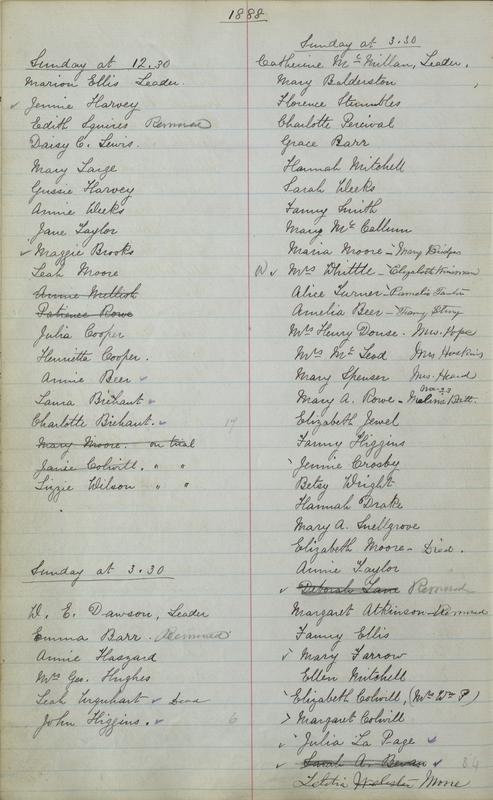 1888
Sunday at 12.30
Marion Ellis Leader.
✓ Jennie Harvey
Edith Squires Removed
Daisy C. Lewis.
Mary Large
Gussie Harvey
Annie Weeks
Jane Taylor
✓ Maggie Brooks
Leah Moore
Annie Mellish
Patience Rowe
Julia Cooper
Henrietta Cooper.
Annie Beer ✓
Laura Brehaut ✓
Charlotte Brehaut. ✓ 17
Mary Moore. on trial
Janie Colwill. " "
Lizzie Wilson " "
Sunday at 3.30
W. E. Dawson, Leader
Emma Barr. Removed
Annie Haszard
Mrs Geo. Hughes
Leah Urquhart ✓ Dead
John Higgins. ✓ 6
Sunday at 3.30
Catherine McMillan, Leader.
Mary Balderston
Florence Stumbles
Charlotte Percival
Grace Barr
Hannah Mitchell
Sarah Weeks
Fanny Smith
Mary McCallum
Maria Moore - Mary Bridges
W ✓ Mrs Whittle - Elizabeth
Alice Turner - Pamelia
Amelia Beer -
Mrs Henry Douse. Mrs. Pope
Mrs McLeod Mrs Hoskins
Mary Spenser Mrs. Heard
Mary A. Rowe - Melina Bett.
Elizabeth Jewel
Fanny Higgins
Jennie Crosby
Betsy Wright
Hannah Drake
Mary A. Snellgrove
Elizabeth Moore - Died.
Annie Taylor
✓ Deborah Lane Removed
Margaret Atkinson - Removed
Fanny Ellis
✓ Mary Farrow
Ellen Mitchell
Elizabeth Colwill, (Mrs Wm P)
Margaret Colwill
✓ Julia La Page ✓
✓ Sarah A. Bevan ✓ 34
Letitia Webster Moore